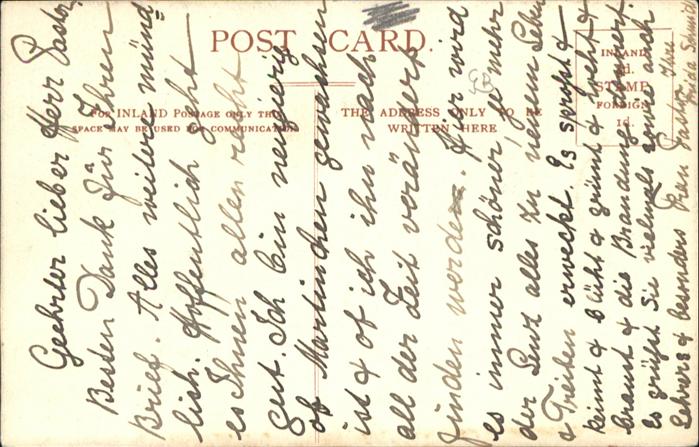 POST CARD.
FOR INLAND POSTAGE ONLY THIS
SPACE MAY BE USED FOR COMMUNICATION
THE ADDRESS ONLY TO BE
WRITTEN HERE
INLAND
½d.
STAMP
FOREIGN
1d.
Geehrter lieber Herr Pastor,
Besten Dank für Ihren
Brief. Alles weitere münd
lich. Hoffentlich geht
es Ihnen allen recht
gut. Ich bin neugierig
ob Martinchen gewachsen
ist & ob ich ihn nach
all der Zeit verändert
finden werde. Hier wird
es immer schöner, je mehr
der Lenz alles zu neuem Leben
& Treiben erweckt. Es sprosst &
keimt & blüht & grünt & weht &
braust & die Brandung donnert.
Es grüsst Sie vielmals sowie auch
Lehrers & besonders Frau Pastor Ihre